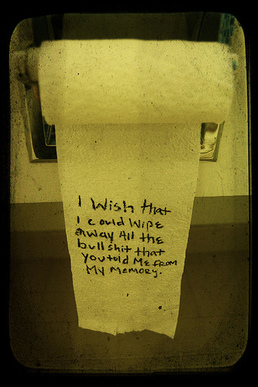 I Wish that
I could Wipe
away All the
bullshit that
you told Me From
My Memory.